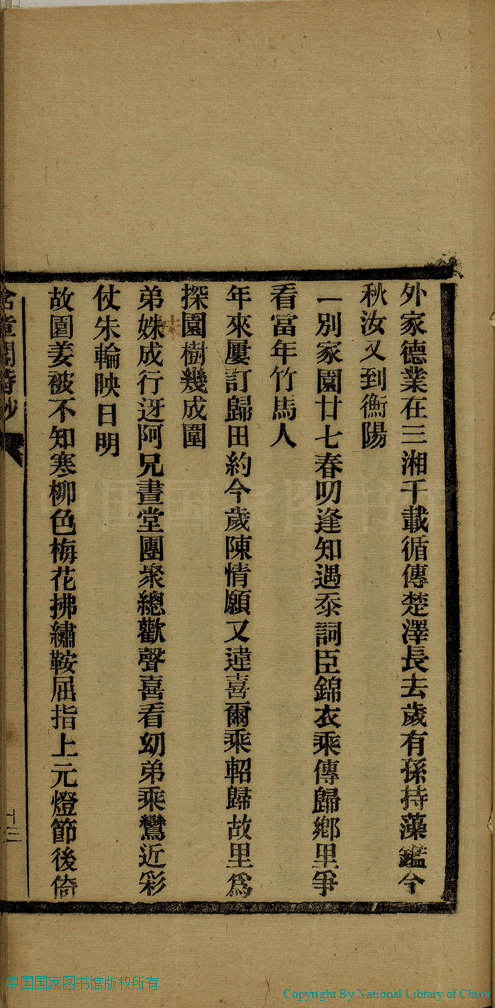 外家德業在三湘千載循傳楚澤長去歲有孫持藻鑑今
秋汝又到衡陽
一別家園廿七春叨逢知遇忝詞臣錦衣乘傳歸鄉里爭
看當年竹馬人
年來屢訂歸田約今歲陳情願又違喜爾乘軺歸故里為
探園樹幾成圍
弟妹成行迓阿兄書堂團聚總歡聲喜看幼弟乘鸞近彩
仗朱輪映日明
故園姜被不知寒柳色梅花拂繡鞍屈指上元燈節後倚
十三
中国国家图书馆
中国国家图书馆版权所有
Copyright By National Library of China